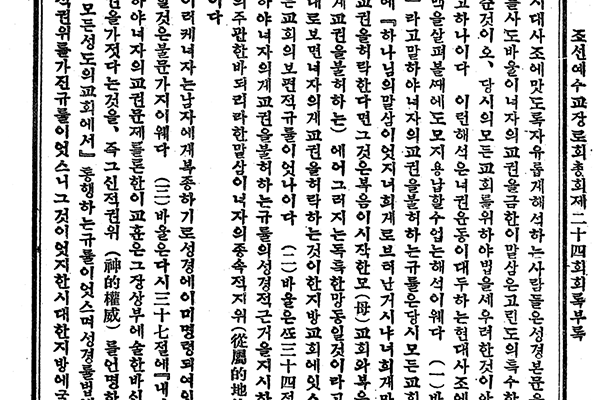 조선예수교장로회총회제二十四회회록부록
시대사조에맛도록자유롭게해석하는사람들은성경본문을
들사도바울이녀자의교권을금한이말삼은고린도의특수한
준것이오、당시의모든교회를위하야법을세우려한것이아
고하나이다 이런해석은녀권운동이대두하는현대사조에
맥을살펴볼때에도모지용납할수업는해석이웨다 (一)바
」라고말하야녀자의교권을불허하는규률은당시모든교회
에『하나님의말삼이엇지너희게로브터난거시냐너희재만
교권을허락한다면그것은복음이시작한모(母)교회와복음
게교권을불허하는)에어그러지는독특한망동일것이라고
대로보면녀자의게교권을허락하는것이한지방교회에잇스
는교회의보편적규률이엇나이다 (二)바울은또三十四절
하야녀자의게교권을불허하는규률의성경적근거을지시하
의주관한바되리라한말삼이녀자의종속적지위(從屬的地
이다
이러케녀자는남자에게복종하기로성경에이미명령되여잇
할것은불문가지이웨다 (三)바울은다시三十七절에『내
하야녀자의교권문제를론한이교훈은그장상부에술한바신
언을가젓다는것을、즉그신적권위(神的權威)를언명하
모든성도의교회에서』통행하는규률이엇스며성경률법
적권위를가진규률이엇스니그것이엇지한시대한지방에국